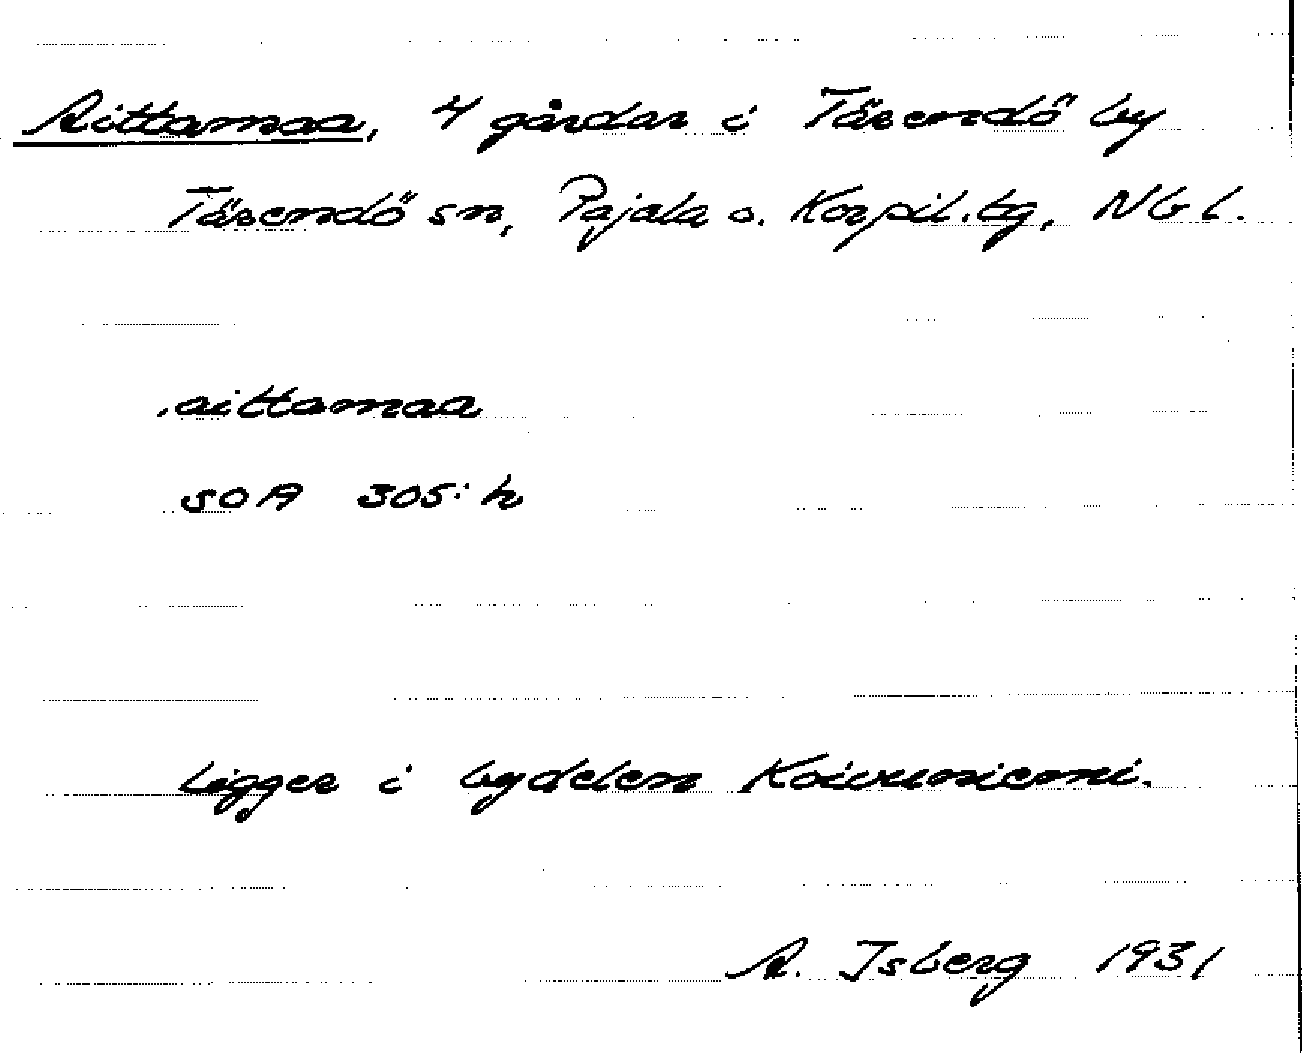 Aittamaa, 4 gårdar i Tärendö by
Tärendö sn, Pajala o. Korpil. tg, Nb l.
aittamaa
SOA 305: h
Ligger i bydelen Koivuniemi.
A. Isberg 1931